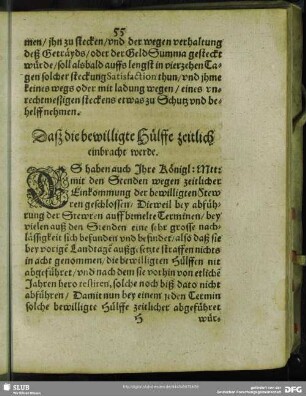 55
men/ jhn zu stecken/ vnd der wegen verhaltung
deß Getråyds/ oder der Geld Summa gesteckt
wůrde/ soll alsbald auffs lengst in vierzehen Ta-
gen solcher steckung Satisfaction thun/ vnd jhme
keines wegs oder mit ladung wegen/ eines vn-
rechtmessigen steckens etwas zu Schutz vnd be-
helff nehmen.
Daß die bewilligte Hůlffe zeitlich
einbracht werde.
ES haben auch Jhre Königl: Mtt:
mit den Stenden wegen zeitlicher
Einkommung der bewilligten Stew-
ren geschlossen/ Dieweil bey abfůh-
rung der Stewren auff bemelte Terminen/ bey
vielen auß den Stenden eine sehr grosse nach-
lässigkeit sich befunden vnd befindet/ also daß sie
bey vorige Landtage außgesetzte straffen nichts
in acht genommen/ die bewilligten Hůlffen nit
abgefůhret/ vnd nach dem sie vorhin von etliche
Jahren hero restiren/ solche noch biß dato nicht
abfůhren/ Damit nun bey einem jeden Termin
solche bewilligte Hůlffe zeitlicher abgefůhret
H wůr-
SLUB